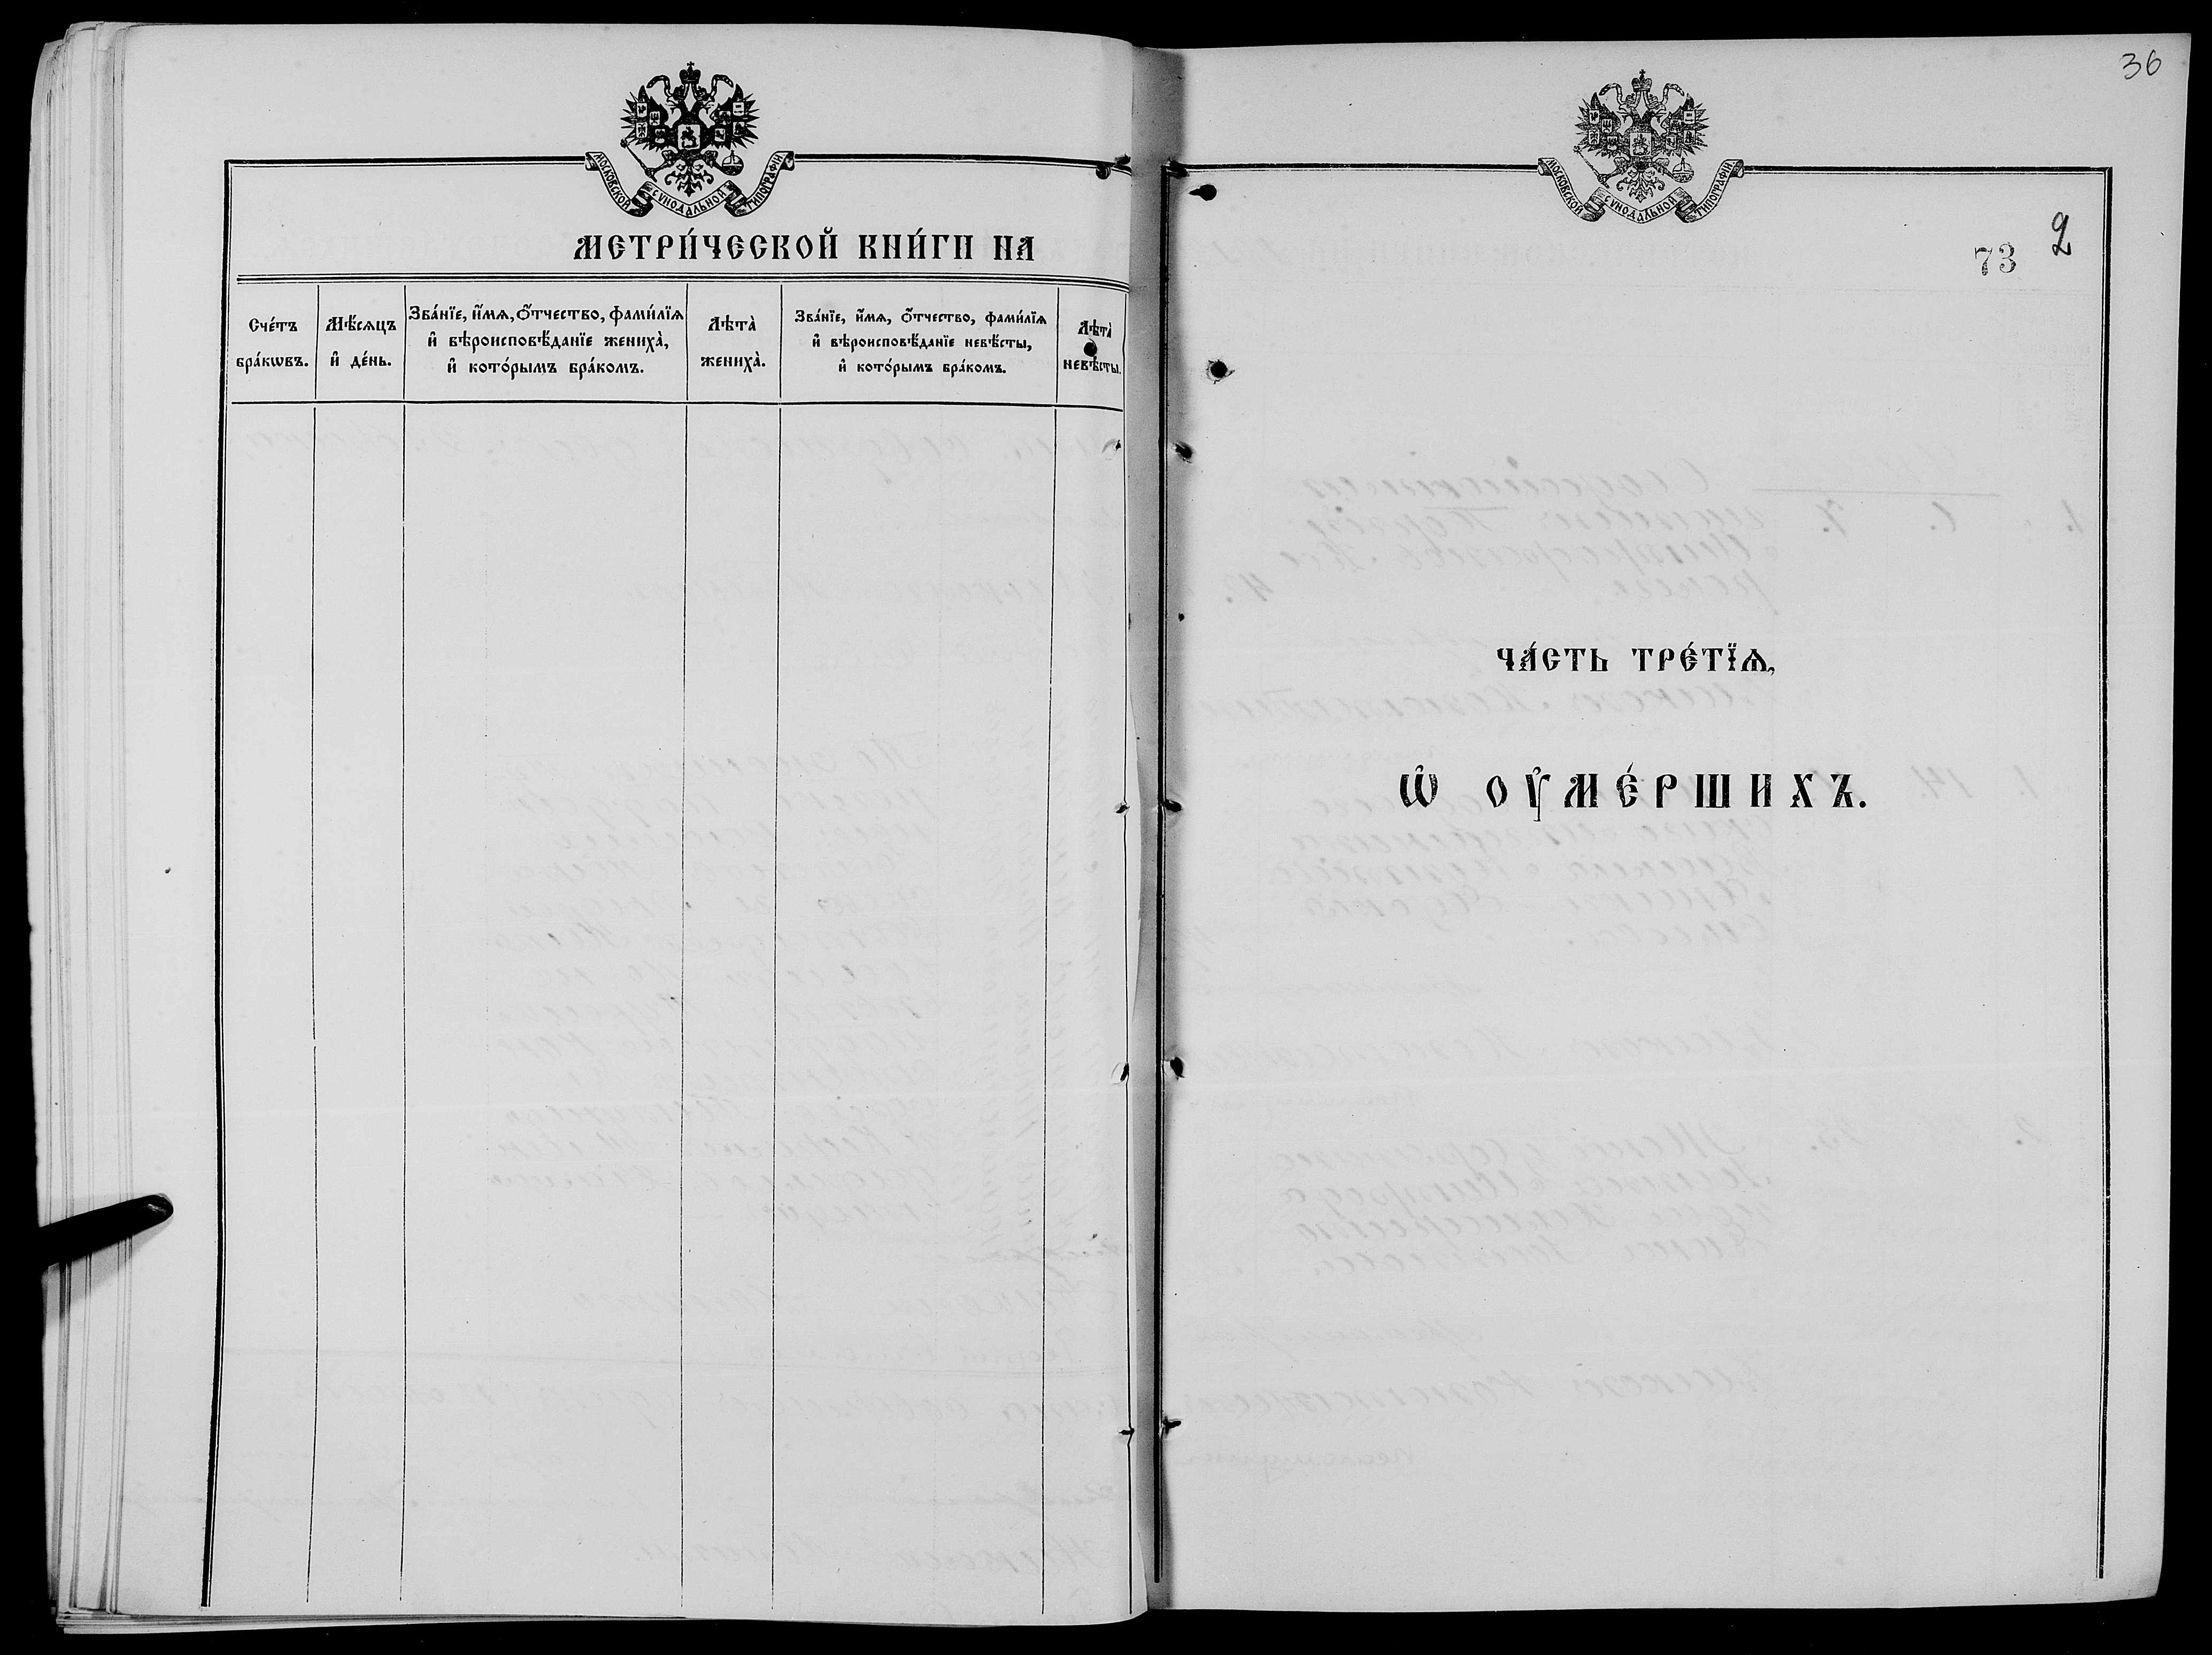 МОСКОВСКОЙ СѴНОДАЛЬНОЙ ТИПОГРАФІИ
МЕТРИ́ЧЕСКОЙ КНИ́ГИ НА
Сче́тъ бра́кѡвъ.
Мѣ́сяцъ и҆ де́нь.
Зва́нїе, и҆́мѧ, ѻ҆́тчество, фами́лїѧ
и҆ вѣроисповѣ́данїе жениха̀,
и҆ кото́рымъ бра́комъ.
Лѣта̀ жениха̀.
Зва́нїе, и҆́мѧ, ѻ҆́тчество, фами́лїѧ
и҆ вѣроисповѣ́данїе невѣ́сты,
и҆ кото́рымъ бра́комъ.
Лѣта̀ невѣ́сты.
36
МОСКОВСКОЙ СѴНОДАЛЬНОЙ ТИПОГРАФІИ
73 2
ЧА́СТЬ ТРЕ́ТЇѦ,
Ѡ҆ ОУ҆МЕ́РШИХЪ.